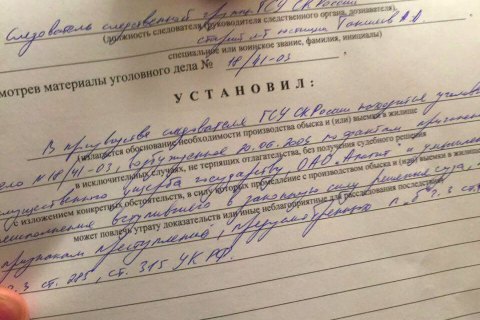 Следователь следственной группы ГСУ СК России
(должность следователя (руководителя следственного органа, дознавателя),
старший л-т юстиции А.А.
специальное или воинское звание, фамилия, инициалы)
мотрев материалы уголовного дела № 18/41-03
УСТАНОВИЛ:
В следователя ГСУ СК России находится уголовн
(излагается обоснование необходимости производства обыска и (или) выемки в жилище
ело №18/41-03, возбужденное по фактам причинения
в исключительных случаях, не терпящих отлагательства, без получения судебного решения
имущественного ущерба государству, ОАО и
с изложением конкретных обстоятельств, в силу которых промедление с производством обыска и (или) выемки в жилище
неисполнения вступившего в законную силу решения суда,
может повлечь утрату доказательств или иные неблагоприятные для расследования последствия)
признакам преступлений, ч. 3 ст.
ч.3 ст. 285, ст. 315 УК РФ.